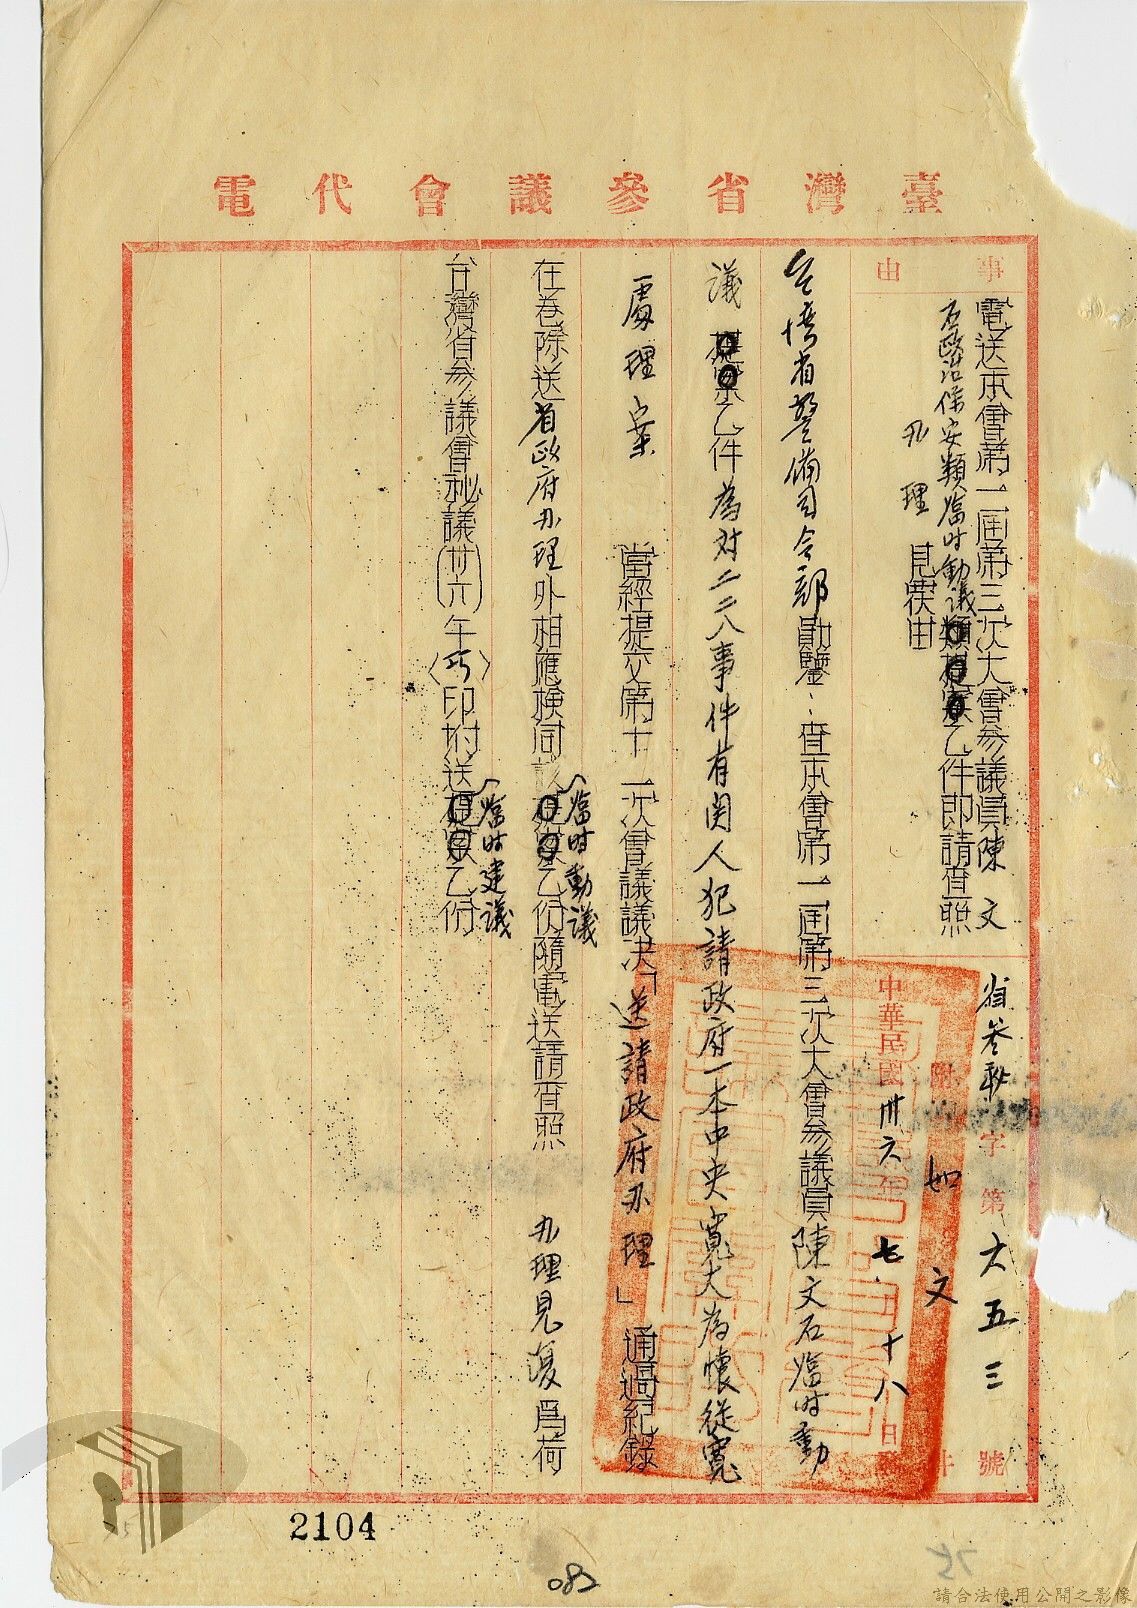 臺灣省參議會代電
事由
電送本會第一屆第三次大會參議員陳文
石政治保安類臨時動議乙件即請查照
辦理見復由
省參秘字第六五三號
附如文件
中華民國卅六年七月十八日
台灣省警備司令部勛鑒、查本會第一屆第三次大會參議員陳文石臨時動
議乙件為对二二八事件有関人犯請政府一本中央寬大為懷從寬
處理案 當經提交第十一次會議議決「送請政府办理」通過紀錄
在卷除送省政府办理外相應檢同該臨時動議乙份隨電送請查照 办理見復為荷
台灣省參議會秘議(卅六)年〈巧〉印附送臨時建議乙份
2104
082
請合法使用公開之影像